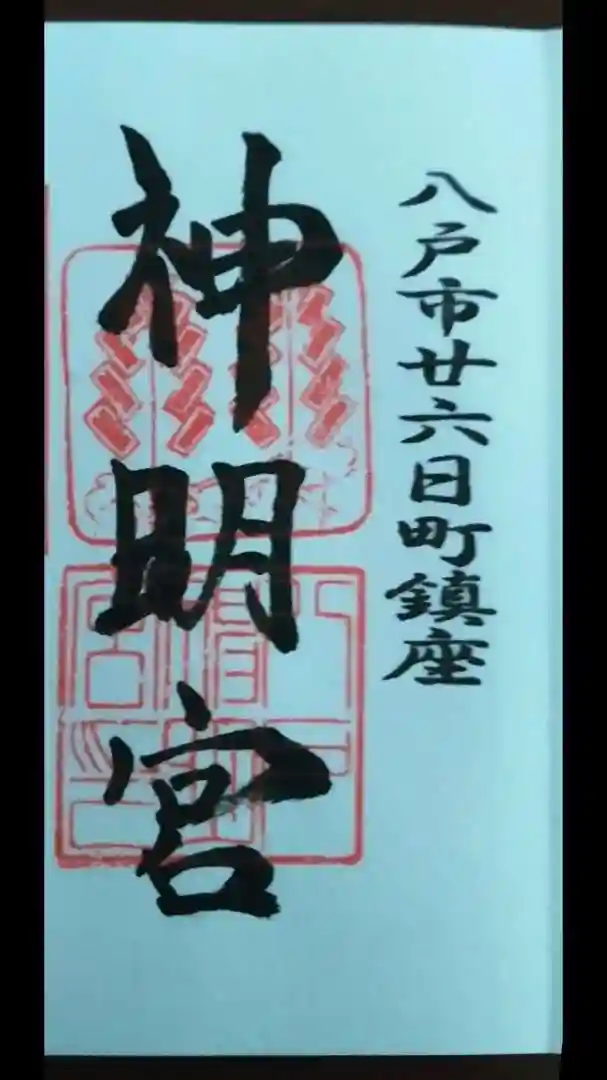 八戸市廿六日町鎮座
神明宮